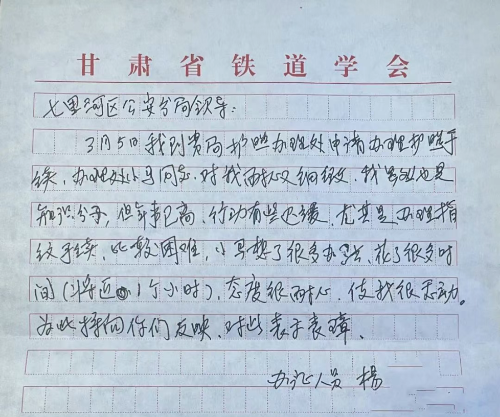 甘肃省铁道学会
七里河区公安分局领导:
3月5日我到贵局护照办理处申请办理护照手
续,办理处小马同志,对我耐心又细致,我虽然也是
知识分子,但年事已高,行动有些迟缓,尤其是办理指
纹手续,比较困难,小马想了很多办法,花了很多时
间(将近1个小时),态度很耐心,使我很感动。
为此择向你们反映,对此表示表璋。
办证人员 杨